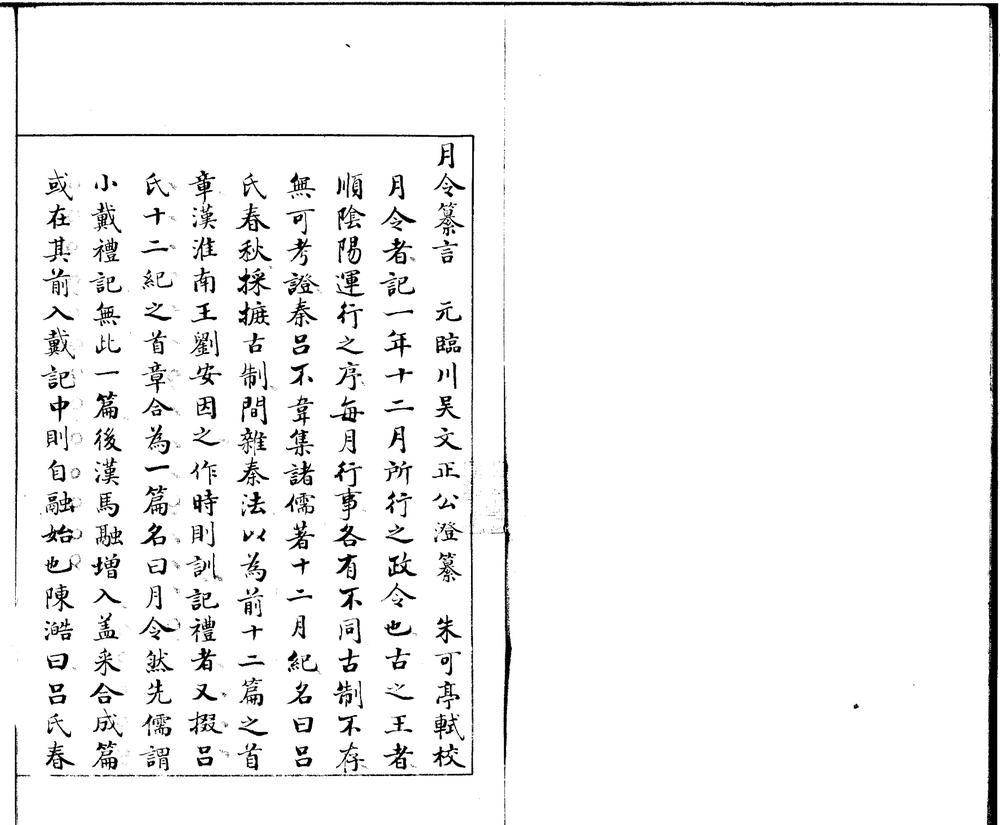 月令纂言　元臨川吴文正公澄纂　朱可亭軾校
月令者記一年十二月所行之政令也古之王者
順陰陽運行之序每月行事各有不同古制不存
無可考證秦呂不韋集諸儒著十二月紀名曰呂
氏春秋採摭古制間雜秦法以為前十二篇之首
章漢淮南王劉安因之作時則訓記禮者又掇呂
氏十二紀之首章合為一篇名曰月令然先儒謂
小戴禮記無此一篇後漢馬融增入盖采合成篇
或在其前入戴記中則自融始也陳澔曰呂氏春